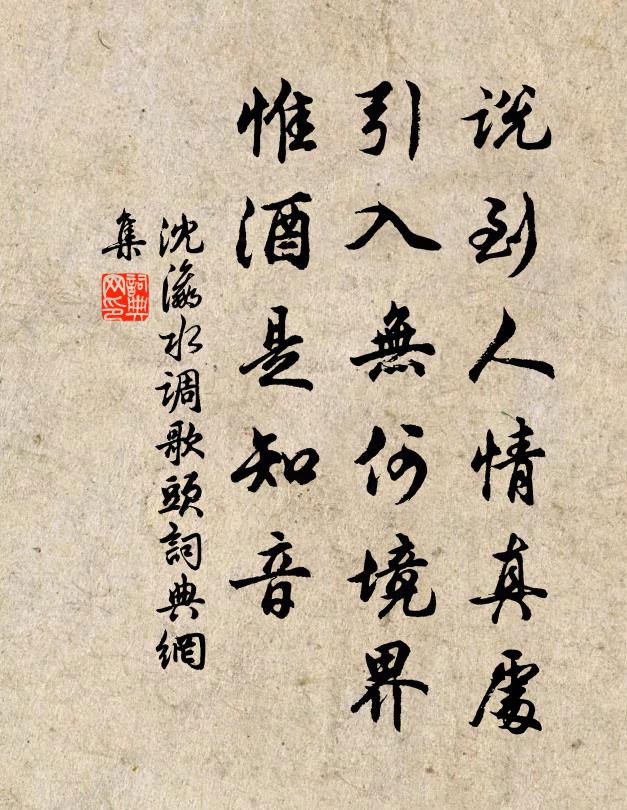 说到人情真處
引入無何境界
惟酒是知音
沈瀛水调歌頭詞典網
集
詞典网印